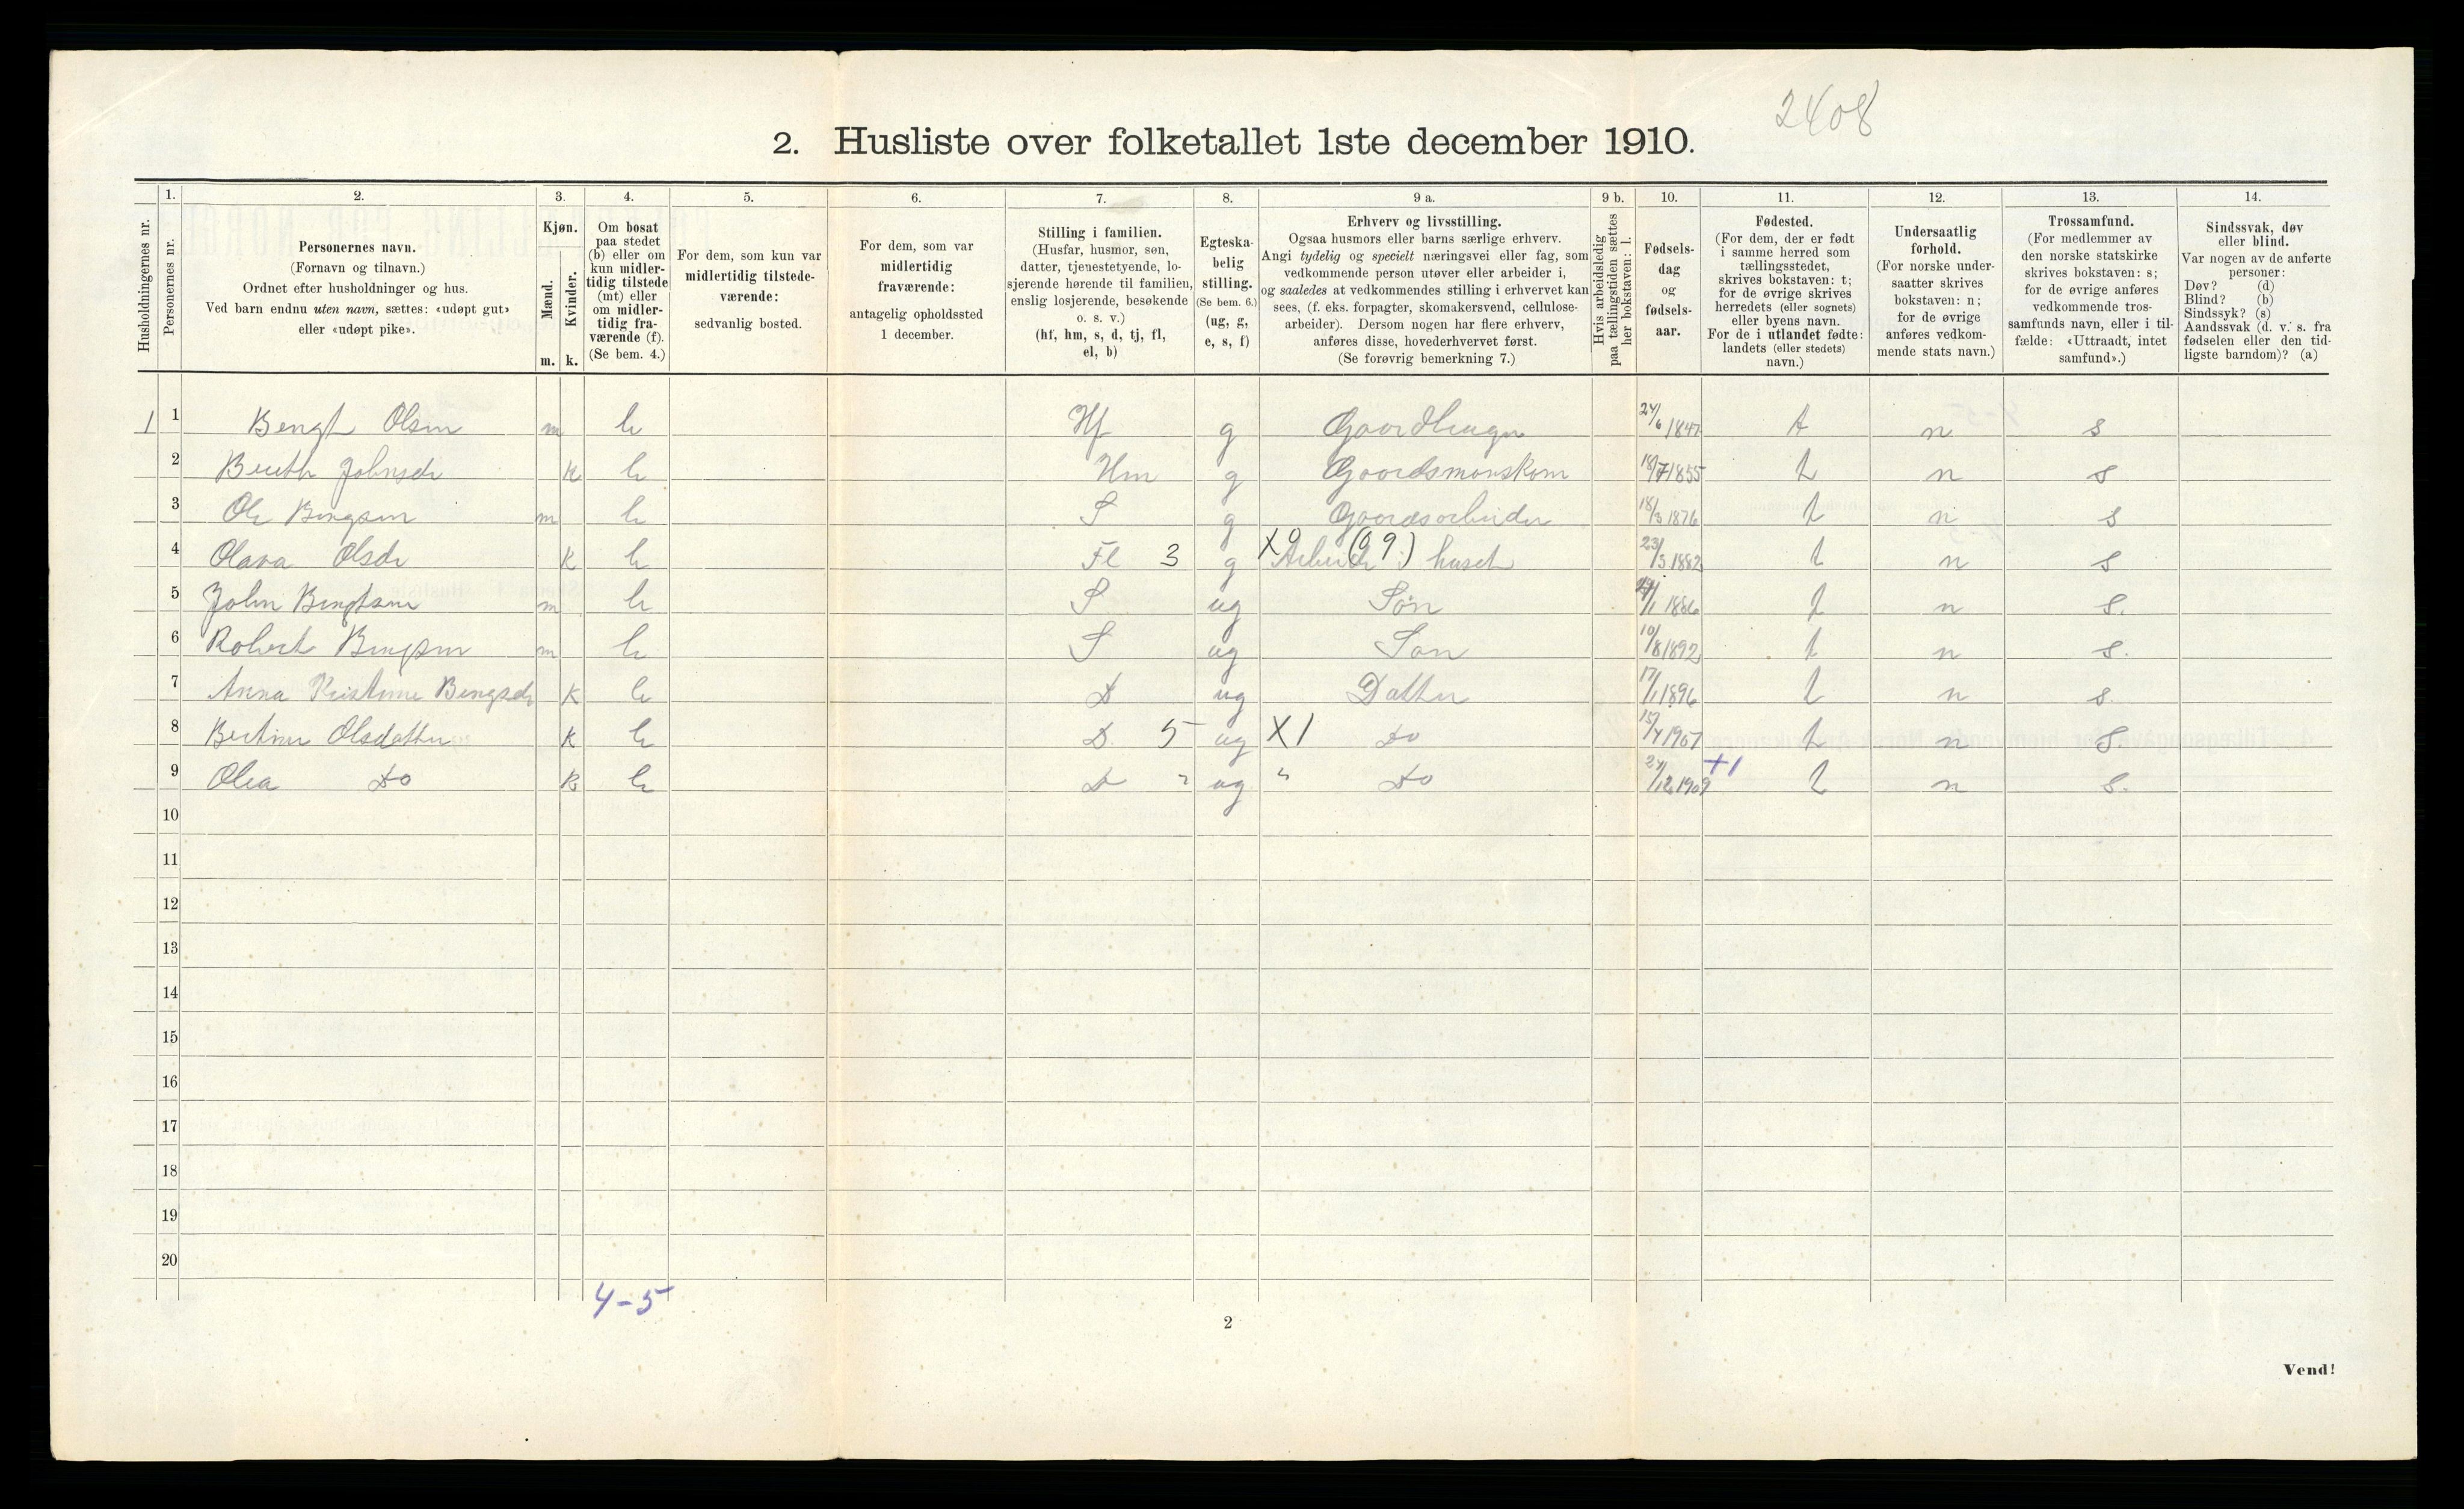 2408
2. Husliste over folketallet 1ste december 1910.
Husholdningernes nr.
1.
Personernes nr.
2.
Personernes navn.
(Fornavn og tilnavn.)
Ordnet efter husholdninger og hus.
Ved barn endnu uten navn, sættes: «udøpt gut»
eller «udøpt pike».
3.
Kjøn.
Mænd.
Kvinder.
m. k.
4.
Om bosat
paa stedet
(b) eller om
kun midler-
tidig tilstede
(mt) eller
om midler-
tidig fra-
værende (f).
(Se bem. 4.)
5.
For dem, som kun var
midlertidig tilstede-
værende:
sedvanlig bosted.
6.
For dem, som var
midlertidig
fraværende:
antagelig opholdssted
1 december.
7.
Stilling i familien.
(Husfar, husmor, søn,
datter, tjenestetyende, lo-
sjerende hørende til familien,
enslig losjerende, besøkende
o. s. v.)
(hf, hm, s, d, tj, fl,
el, b)
8.
Egteska-
belig
stilling.
(Se bem. 6.)
(ug, g,
e, s, f)
9 a.
Erhverv og livsstilling.
Ogsaa husmors eller barns særlige erhverv.
Angi tydelig og specielt næringsvei eller fag, som
vedkommende person utøver eller arbeider i,
og saaledes at vedkommendes stilling i erhvervet kan
sees, (f. eks. forpagter, skomakersvend, cellulose-
arbeider). Dersom nogen har flere erhverv,
anføres disse, hovederhvervet først.
(Se forøvrig bemerkning 7.)
9 b.
Hvis arbeidsledig
paa tællingstiden sættes
her bokstaven: l.
10.
Fødsels-
dag
og
fødsels-
aar.
11.
Fødested.
(For dem, der er født
i samme herred som
tællingsstedet,
skrives bokstaven: t;
for de øvrige skrives
herredets (eller sognets)
eller byens navn.
For de i utlandet fødte:
landets (eller stedets)
navn.)
12.
Undersaatlig
forhold.
(For norske under-
saatter skrives
bokstaven: n;
for de øvrige
anføres vedkom-
mende stats navn.)
13.
Trossamfund.
(For medlemmer av
den norske statskirke
skrives bokstaven: s;
for de øvrige anføres
vedkommende tros-
samfunds navn, eller i til-
fælde: «Uttraadt, intet
samfund».)
14.
Sindssvak, døv
eller blind.
Var nogen av de anførte
personer:
Døv? (d)
Blind? (b)
Sindssyk? (s)
Aandssvak (d. v. s. fra
fødselen eller den tid-
ligste barndom)? (a)
1 1 Bengt Olsen m b Hf g 24/6 1847 t n s
2 Johnsdr k b Hm g Gaardsmanskone 18/7 1855 t n s
3 Ole Bengsen m b S g Gaardsarbeider 18/3 1876 t n s
4 Olava Olsdr k b Fl 3 g X0 (09.) huset 23/3 1882 t n s
5 John Bengtsen m b S ug Søn 1886 t n s.
6 Robert Bengsen m b S ug Søn 10/8 1892 t n s.
7 Anna Kristine Bengsdr k b D ug Datter 17/1 1896 t n s.
8 Bertine Olsdatter k b D. 5 ug X1 Do 15/4 1907 t n s
9 Olea Do k b D " ug " Do 24/12 1909 +1 t n s.
10
11
12
13
14
15
16
17
18
19
20
4-5
2
Vend!